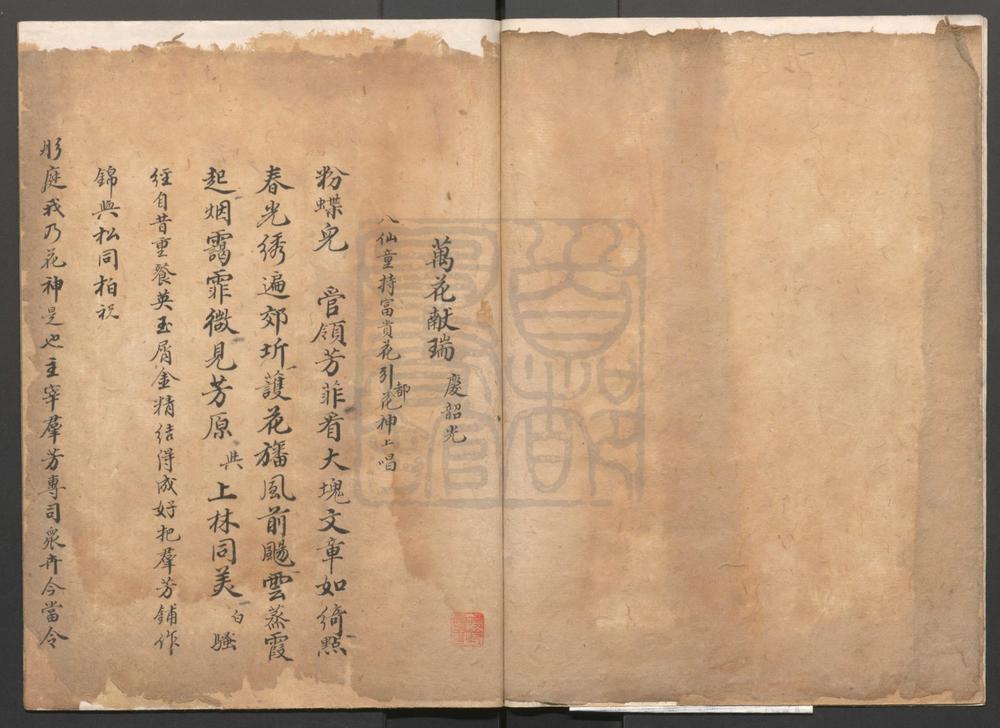 萬花献瑞 慶韶光
八仙童持富貴花引都花神上唱
粉蝶兒 管領芳菲看大塊文章如綺點
春光綉遍郊圻護花旛風前颺雲蒸霞
起烟靄霏微見芳原與上林同美 白 騷
經自昔重餐英玉屑金精結得成好把羣芳鋪作
錦與松同柏祝
彤庭我乃花神是也主宰羣芳專司眾卉今當令